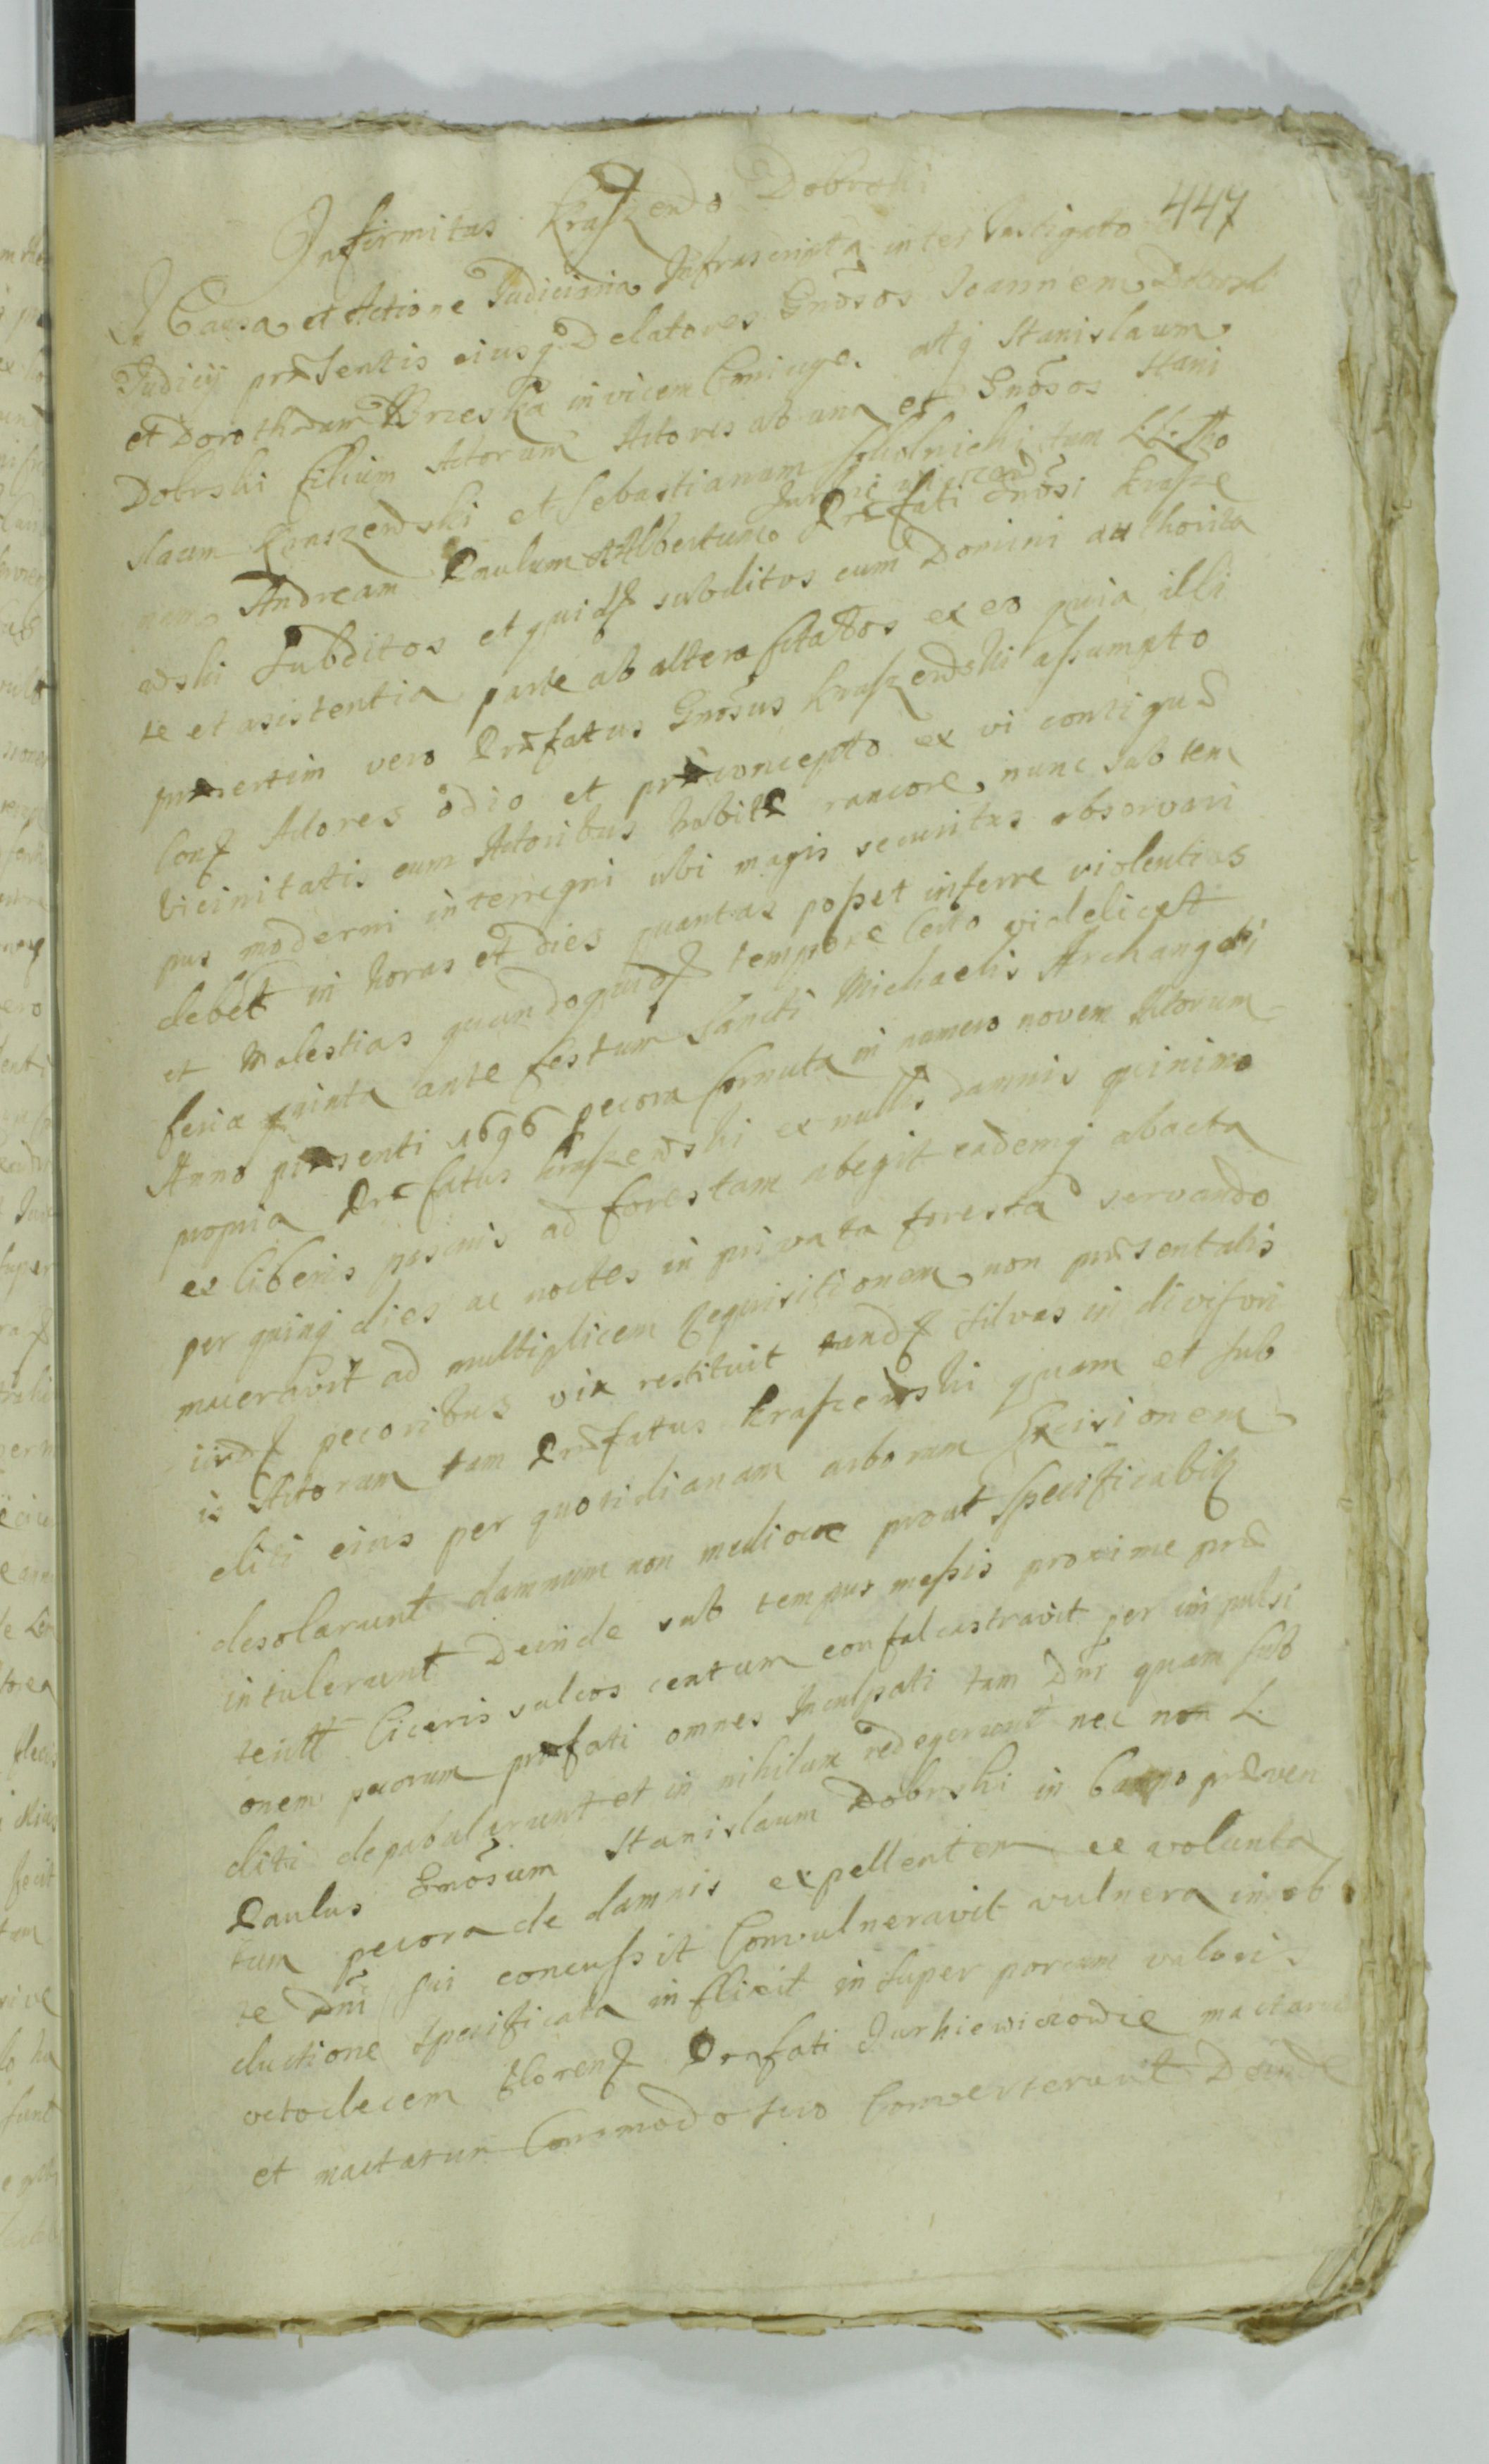 447
Infirmitas Kraszewo Dobrski
In Causa et Actione Judiciaria Infrascripta inter Instigato
Judicij præsentis eiusq Delatores Gnosos Joannem Dobrski
et Dorotheam Brzeska invicem Coniuge. atq Stanislaum
Dobrski filium Actorum Actores ab una et Gnosos Stani
slaum Kraszewski et Sebastianum Szkolnicki tum LL. Tho
nem Andream Paulum Albertum Præfati Gnosi Krasze
wski Subditos et quidē subditos cum Domini authorita
te et asistentia parte ab altera citatos ex eo quia illi
præsertim vero Præfatus Gnosus Kraszewski assumpto
Conz Actores odio et præconcepto ex vi contigua
vicinitatis cum Actoribus habito rancore, nunc sub tem
pus moderni interregni ubi magis securitas observari
debet in horas et dies quantas posset inferre violentias
et molestias quandoquidē tempore certo videlicet
feria quinta ante festum Sancti Michaelis Archangeli
Anno præsenti 1696 pecora cornuta in numero novem Actorum
propria Præfatus Kraszewski ex nullis damnis quinimo
ex liberis pascuis ad forestam abegit eademq abacta
per quinq dies ac noctes in privata foresta servando
maceravit ad multiplicem requisitionem non præsentatis
iisdē pecoribus vix restituit tandē silvas in divisori
is Actorum tam Præfatus Kraszewski quam et sub
diti eius per quotidianam arborum Excisionem
desolarunt damnum non mediocre prout specificabit
intulerunt Deinde sub tempus messis proxime præ
teritt Ciceris sulcos centum confalcastravit per impulsi
onem pecorum præfati omnes Inculpati tam Dni quam sub
diti depabularunt et in nihilum redegerunt nec non L.
Paulus Gnosum Stanislaum Dobrski in campo præven
tum pecora de damnis expellentem ex volunta
te Dni sui concussit Convulneravit vulnera in ob
ductione specificata inflixit insuper porcum valoris
octodecem florenz Præfati Jurkiewiczowie mactarunt
et mactatum Commodo suo Converterunt Deinde